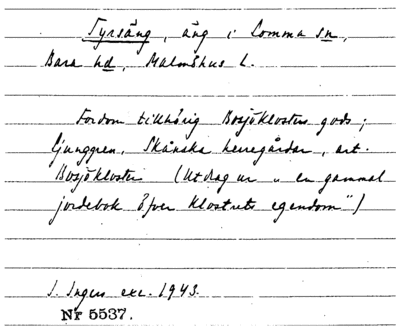 Tyrsäng, äng i Lomma sn,
Bara hd, Malmöhus L.
Fordom tillhörig Bosjöklosters gods;
Ljunggren, Skånska herregårdar, art.
Bosjökloster (Utdrag ur „en gammal
jordebok öfver klostrets egendom")
I. Ingers exc. 1943.
Nr 5537.